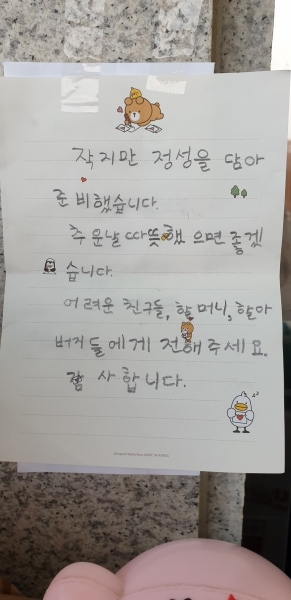 작지만 정성을 담아
준비했습니다.
추운날 따뜻했으면 좋겠
습니다.
어려운 친구들, 할머니, 할아
버지들에게 전해주세요.
감사합니다.